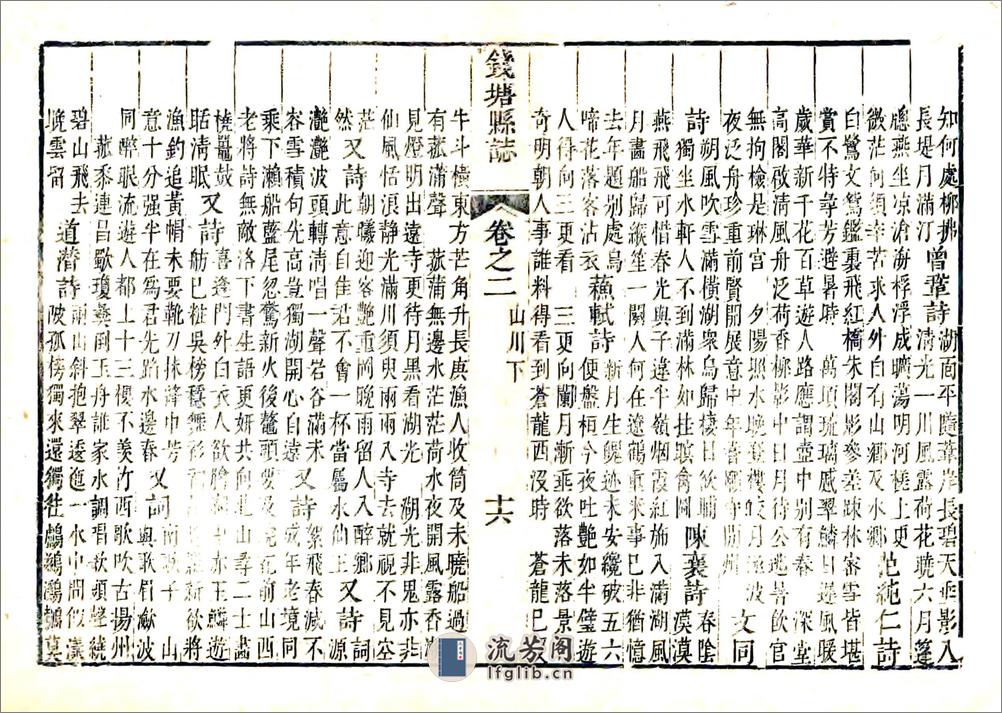 錢塘縣誌
卷之二
山川下
十六
知何處柳拂
長堤月滿汀
曾鞏詩
湖面平隨葦岸長碧天垂影入
清光一川風露荷花曉六月蓬
牕燕坐凉滄海桴浮成曠蕩明河槎上更
微茫何須辛苦求人外自有山鄉及水鄉
范純仁詩
白鷺文鴛鑑裏飛紅橋朱閣影參差疎林審雪皆堪
賞不特尋芳與避暑時 萬頃琉璃感翠鱗日邊風暖
歲華新千花百草遊人路應謂壺中別有春 深堂
高閣啟清風舟泛荷香柳影中日月待公逃暑飲官
無拘檢是琳宮 夕陽照水晚樓皎月凌波
夜泛舟珍重前賢開展意中年喜開州
文同
詩
朔風吹雪滿橫湖衆烏歸棲日飲晡
獨坐水軒人不到滿林如挂暝禽圖
陳襄詩
春陰
漠漠
燕飛飛可惜春光與子違半嶺烟霞紅旆入滿湖風
月畫船歸緱笙一闋人何在遼鶴重來事已非猶憶
去年題別處烏
啼花落客沾衣
蘇軾詩
新月生魄迹未安纔破五六
便盤桓今夜吐艷如半璧遊
人得向三更看 三更向闌月漸垂欲落未落景
奇明朝人事誰料得看到蒼龍西沒時 蒼龍已沒
牛斗橫東方芒角升長庚漁人收筒及未曉船過
有菰蒲聲 菰蒲無邊水茫茫荷水夜開風露香
見燈明出遠寺更待月黑看湖光 湖光非思亦非
仙風恬浪靜光滿川須臾兩兩入寺去就視不見空
茫
然
又詩
朝曦迎客艷重岡晚雨留人入醉鄉
此意自佳君不會一杯當屬水仙王
又詩
詞
源
灧灧波頭轉清唱一聲岩谷滿未
容雪積句先高豈獨湖開心自遠
又詩
絮飛春減不
成年老境同
乘下瀨船藍尾忽驚新火後鰲頭花前山西
老將詩無敵洛下書生語更妍共向北山尋二士畵
橈鼉鼓
聒清眠
又詩
喜逢門外白衣人欲膾赤玉鱗遊
舫已粧吳榜穩舞衫初新欲將
漁釣追黃帽未要靴刀抹絳巾芳
意十分强半在為君先踏水邊春
又詞
前歌子 山
與歌眉斂波
同醉眼流遊人都上十三樓不羨竹西歌吹古揚州
菰黍連昌歜瓊彞倒玉舟誰家水調唱歌頭聲繞
碧山飛去
晚雲留
道潛詩
山斜抱翠逶迤一水中間似
陂孤榜獨來還獨往鸕鷀鴻鵠莫